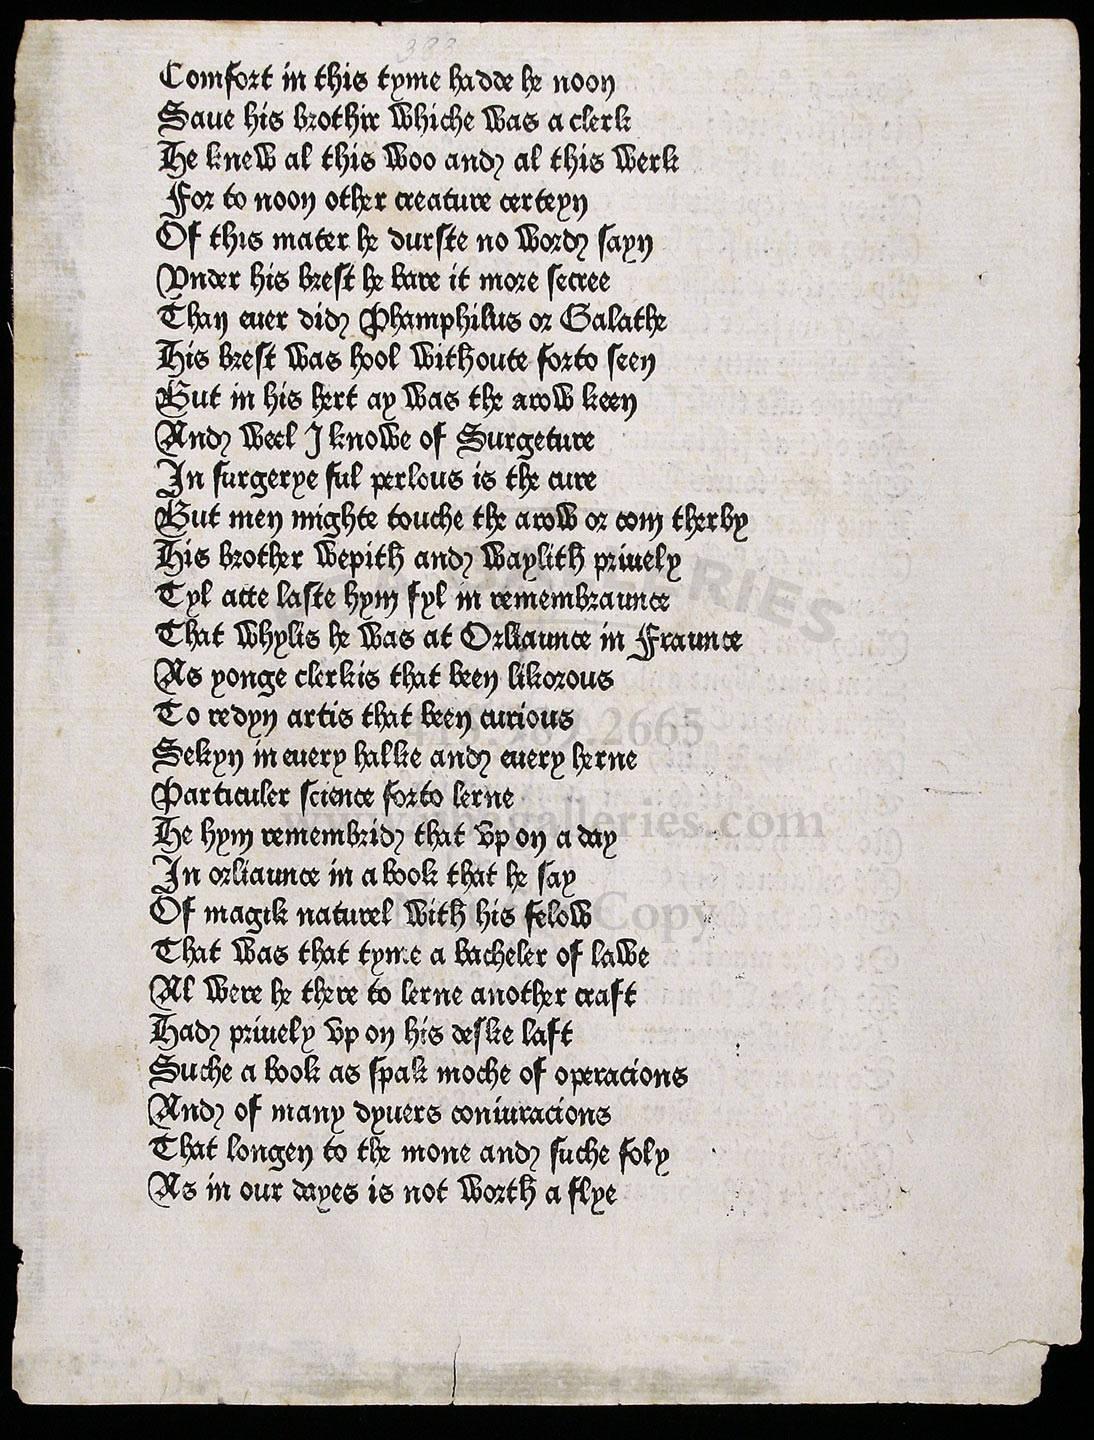 383
Comfort in this tyme hadde he noon
Saue his brothir whiche was a clerk
He knew al this woo and al this werk
For to noon other creature certeyn
Of this mater he durste no word sayn
Vnder his brest he bare it more secree
Than euer did Phamphilus or Galathe
His brest was hool withoute forto seen
But in his hert ay was the arow keen
And weel I knowe of Surgeture
In surgerye ful perlous is the cure
But men mighte touche the arow or com therby
His brother wepith and waylith priuely
Tyl atte laste hym fyl in remembraunce
That whylis he was at Orliaunce in Fraunce
As yonge clerkis that been likorous
To redyn artis that been curious
Sekyn in euery halke and euery herne
Particuler science forto lerne
He hym remembrid that vp on a day
In orliaunce in a book that he say
Of magik naturel with his felow
That was that tyme a bacheler of lawe
Al were he there to lerne another craft
Had priuely vp on his deske laft
Suche a book as spak moche of operacions
And of many dyuers coniuracions
That longen to the mone and suche foly
As in our dayes is not worth a flye